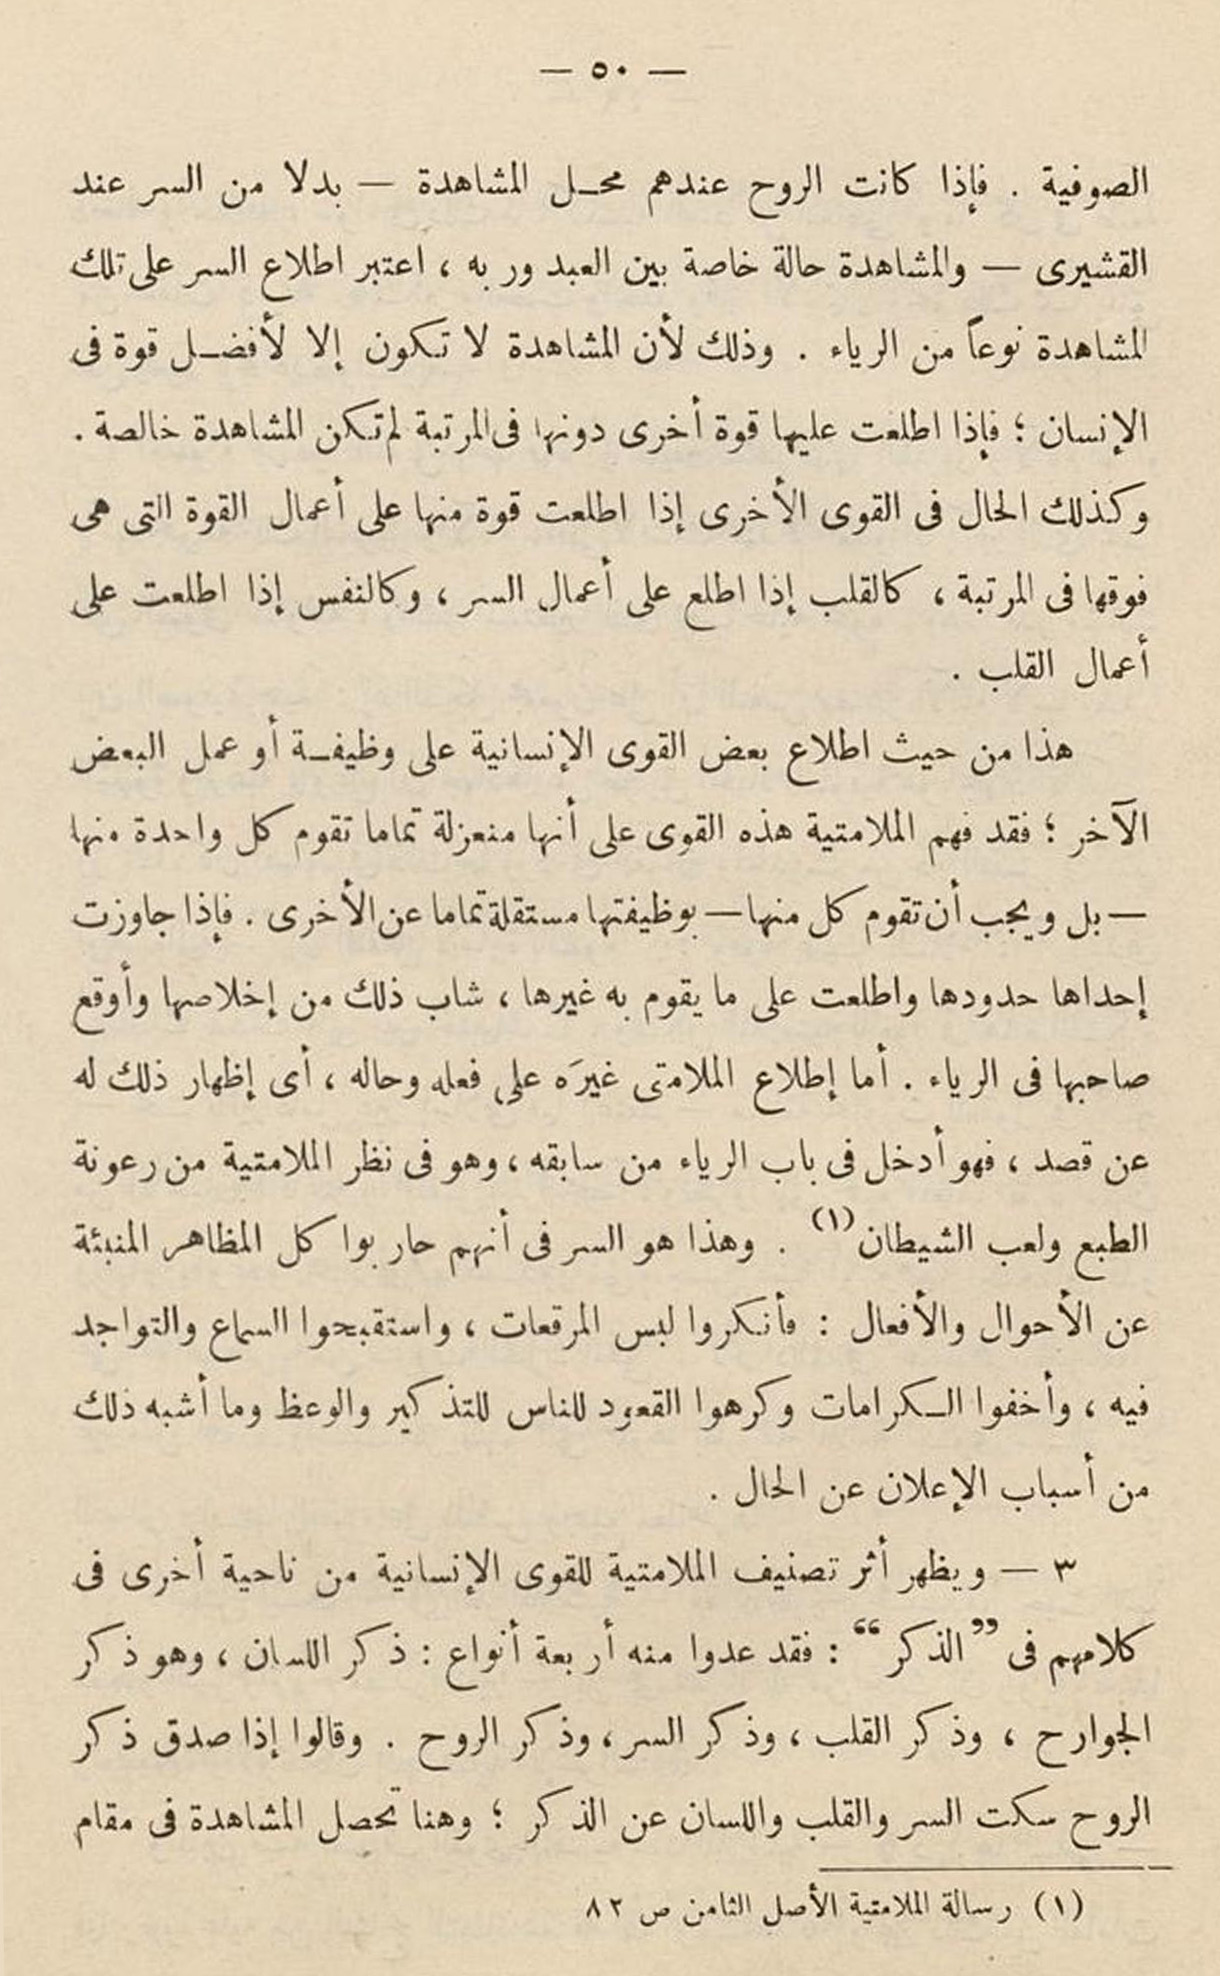 — ٥٠ —
الصوفية . فإذا كانت الروح عندهم محل المشاهدة — بدلا من السر عند
القشيرى — والمشاهدة حالة خاصة بين العبد وربه ، اعتبر اطلاع السر على تلك
المشاهدة نوعاً من الرياء . وذلك لأن المشاهدة لا تكون إلا لأفضل قوة فى
الإنسان ؛ فإذا اطلعت عليها قوة أخرى دونها فى المرتبة لم تكن المشاهدة خالصة .
وكذلك الحال فى القوى الأخرى إذا اطلعت قوة منها على أعمال القوة التى هى
فوقها فى المرتبة ، كالقلب إذا اطلع على أعمال السر ، وكالنفس إذا اطلعت على
أعمال القلب .
هذا من حيث اطلاع بعض القوى الإنسانية على وظيفة أو عمل البعض
الآخر ؛ فقد فهم الملامتية هذه القوى على أنها منعزلة تماما تقوم كل واحدة منها
— بل ويجب أن تقوم كل منها — بوظيفتها مستقلة تماما عن الأخرى . فإذا جاوزت
إحداها حدودها واطلعت على ما يقوم به غيرها ، شاب ذلك من إخلاصها وأوقع
صاحبها فى الرياء . أما إطلاع الملامتى غيرَه على فعله وحاله ، أى إظهار ذلك له
عن قصد ، فهو أدخل فى باب الرياء من سابقه ، وهو فى نظر الملامتية من رعونة
الطبع ولعب الشيطان (١) . وهذا هو السر فى أنهم حاربوا كل المظاهر المنبئة
عن الأحوال والأفعال : فأنكروا لبس المرقعات ، واستقبحوا السماع والتواجد
فيه ، وأخفوا الكرامات وكرهوا القعود للناس للتذكير والوعظ وما أشبه ذلك
من أسباب الإعلان عن الحال .
٣ — ويظهر أثر تصنيف الملامتية للقوى الإنسانية من ناحية أخرى فى
كلامهم فى ”الذكر“ : فقد عدوا منه أربعة أنواع : ذكر اللسان ، وهو ذكر
الجوارح ، وذكر القلب ، وذكر السر ، وذكر الروح . وقالوا إذا صدق ذكر
الروح سكت السر والقلب واللسان عن الذكر ؛ وهنا تحصل المشاهدة فى مقام
(١) رسالة الملامتية الأصل الثامن ص ٨٢